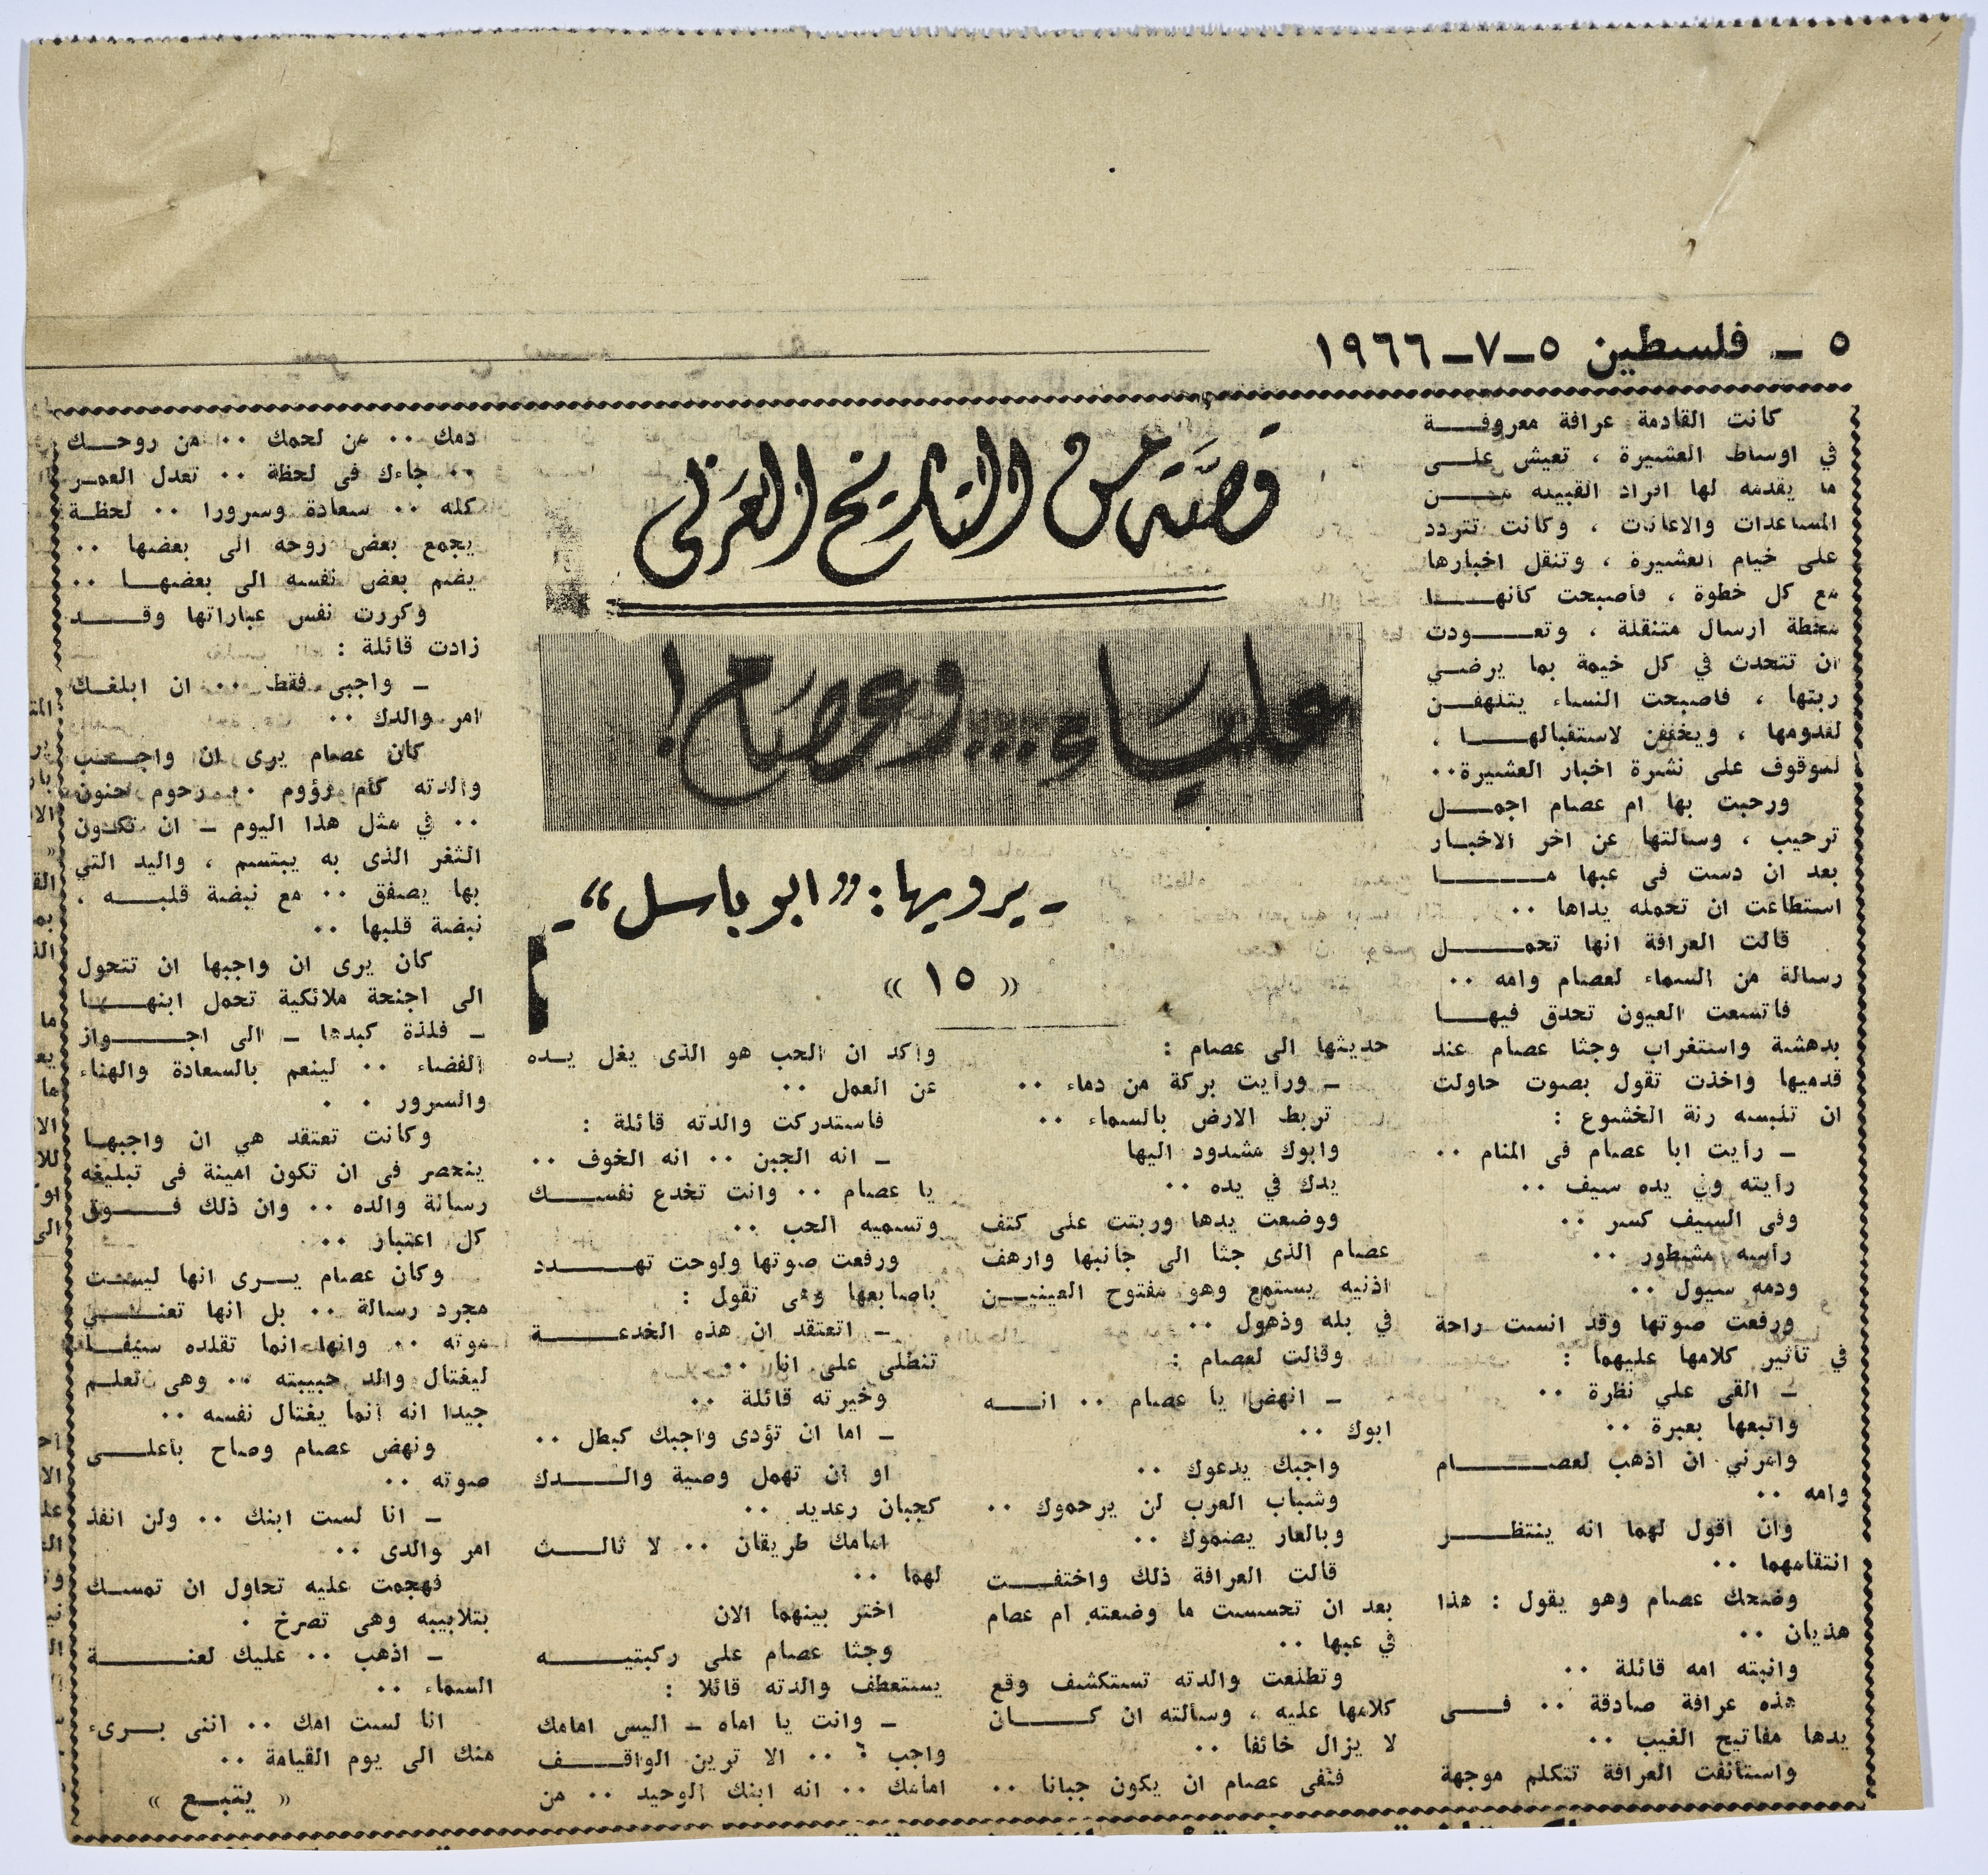 ٥ ــ فلسطين ٥ــ٧ــ١٩٦٦
قصة من التاريخ العربي
علياء ... وعصام !
ـ يرويها : « ابو باسل » ـ
« ١٥ »
كانت القادمة عرافة معروفة
في اوساط العشيرة ، تعيش على
ما يقدمه لها افراد القبيله من
المساعدات والاعانات ، وكانت تتردد
على خيام العشيرة ، وتنقل اخبارها
مع كل خطوة ، فأصبحت كأنها
محطة ارسال متنقلة ، وتعودت
ان تتحدث في كل خيمة بما يرضي
ربتها ، فاصبحت النساء يتلهفن
لقدومها ، ويخففن لاستقبالها ،
للوقوف على نشرة اخبار العشيرة ..
ورحبت بها ام عصام اجمل
ترحيب ، وسألتها عن اخر الاخبار
بعد ان دست فى عبها ما
استطاعت ان تحمله يداها ..
قالت العرافة انها تحمل
رسالة من السماء لعصام وامه ..
فاتسعت العيون تحدق فيها
بدهشة واستغراب وجثا عصام عند
قدميها واخذت تقول بصوت حاولت
ان تلبسه رنة الخشوع :
ـ رأيت ابا عصام فى المنام ..
رأيته وفى يده سيف ..
وفى السيف كسر ..
رأسه مشطور ..
ودمه سيول ..
ورفعت صوتها وقد انست راحة
في تأثير كلامها عليهما :
ـ القى علي نظرة ..
واتبعها بعبرة ..
وامرني ان اذهب لعصام
وامه ..
وان اقول لهما انه ينتظر
انتقامهما ..
وضحك عصام وهو يقول : هذا
هذيان ..
وانبته امه قائلة ..
هذه عرافة صادقة .. فى
يدها مفاتيح الغيب ..
واستأنفت العرافة تتكلم موجهة
حديثها الى عصام :
ـ ورأيت بركة من دماء ..
تربط الارض بالسماء ..
وابوك مشدود اليها
يدك في يده ..
ووضعت يدها وربتت على كتف
عصام الذى جثا الى جانبها وارهف
اذنيه يستمع وهو مفتوح العينين
في بله وذهول ..
وقالت لعصام :
ـ انهض يا عصام .. انه
ابوك ..
واجبك يدعوك ..
وشباب العرب لن يرحموك ..
وبالعار يصموك ..
قالت العرافة ذلك واختفت
بعد ان تحسست ما وضعته ام عصام
في عبها ..
وتطلعت والدته تستكشف وقع
كلامها عليه ، وسألته ان كان
لا يزال خائفا ..
فنفى عصام ان يكون جبانا ..
واكد ان الحب هو الذى يغل يده
عن العمل ..
فاستدركت والدته قائلة :
ـ انه الجبن .. انه الخوف ..
يا عصام .. وانت تخدع نفسك
وتسميه الحب ..
ورفعت صوتها ولوحت تهدد
باصابعها وهى تقول :
ـ اتعتقد ان هذه الخدعة
تنطلى على انا ..
وخيرته قائلة ..
ـ اما ان تؤدى واجبك كبطل ..
او ان تهمل وصية والدك
كجبان رعديد ..
امامك طريقان .. لا ثالث
لهما ..
اختر بينهما الان
وجثا عصام على ركبتيه
يستعطف والدته قائلا :
ـ وانت يا اماه ـ اليس امامك
واجب ؟ .. الا ترين الواقف
امامك .. انه ابنك الوحيد .. من
دمك .. من لحمك .. من روحك
.. جاءك فى لحظة .. تعدل العمر
كله .. سعادة وسرورا .. لحظة
يجمع بعض روحه الى بعضها ..
يضم بعض نفسه الى بعضها ..
وكررت نفس عباراتها وقد
زادت قائلة :
ـ واجبى فقط .. ان ابلغك
امر والدك ..
كان عصام يرى ان واجب
والدته كأم رؤوم .. رحوم حنون
.. في مثل هذا اليوم ـ ان تكون
الثغر الذى به يبتسم ، واليد التي
بها يصفق .. مع نبضة قلبه ،
نبضة قلبها ..
كان يرى ان واجبها ان تتحول
الى اجنحة ملائكية تحمل ابنها
ـ فلذة كبدها ـ الى اجواز
الفضاء .. لينعم بالسعادة والهناء
والسرور . .
وكانت تعتقد هي ان واجبها
ينحصر فى ان تكون امينة فى تبليغه
رسالة والده .. وان ذلك فوق
كل اعتبار ..
وكان عصام يرى انها ليست
مجرد رسالة .. بل انها تعني
موته .. وانها انما تقلده سيفا
ليغتال والد حبيبته .. وهى تعلم
جيدا انه انما يغتال نفسه ..
ونهض عصام وصاح بأعلى
صوته ..
ـ انا لست ابنك .. ولن انفذ
امر والدى ..
فهجمت عليه تحاول ان تمسك
بتلابيبه وهى تصرخ .
ـ اذهب .. عليك لعنة
السماء ..
انا لست امك .. اننى برىء
منك الى يوم القيامة ..
« يتبع »